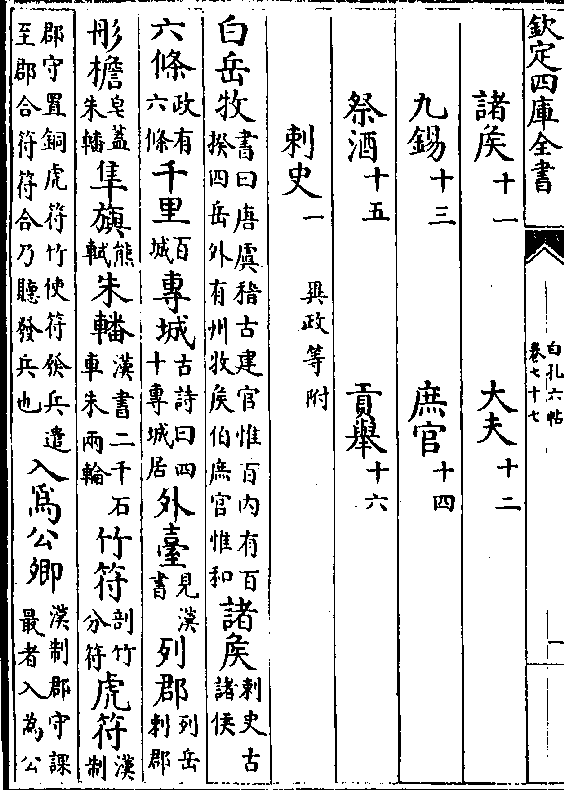 欽定四庫全書
白孔六帖
卷七十七
一
諸矦十一 大夫十二
九錫十三 庶官十四
祭酒十五 貢舉十六
刺史一 異政等附
白岳牧書曰唐虞稽古建官惟百内有百揆四岳外有州牧矦伯庶官惟和諸矦刺史古諸侯
六條政有六條千里百城專城古詩曰四十專城居外臺見漢書列郡列岳刺郡
彤襜皂葢朱轓隼旗熊軾朱轓漢書二千石車朱兩輪竹符剖竹分符虎符漢制
郡守置銅虎符竹使符發兵遣至郡合符符合乃聽發兵也入爲公卿漢制郡守課最者入為公